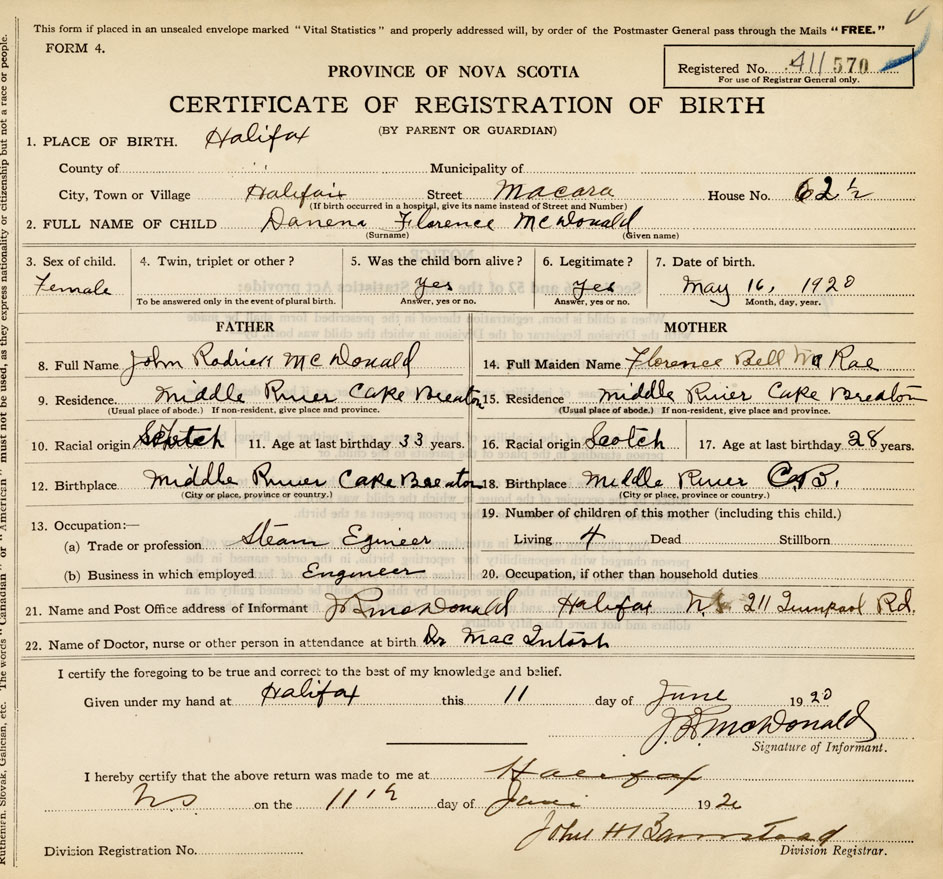 This form if placed in an unsealed envelope marked "Vital Statistics" and properly addressed will, by order of the Postmaster General pass through the Mails "FREE."
FORM 4.
Registered No. 411 570
For use of Registrar General only.
PROVINCE OF NOVA SCOTIA
CERTIFICATE OF REGISTRATION OF BIRTH
(BY PARENT OR GUARDIAN)
1. PLACE OF BIRTH. Halifax
County of Municipality of
City, Town or Village Halifax Street Macara House No. 62½
(If birth occurred in a hospital, give its name instead of Street and Number)
2. FULL NAME OF CHILD Danena Florence McDonald
(Surname) (Given name)
3. Sex of child. 4. Twin, triplet or other? 5. Was the child born alive? 6. Legitimate? 7. Date of birth.
Female yes yes May 16, 1920
To be answered only in the event of plural birth. Answer, yes or no. Answer, yes or no. Month, day, year.
FATHER MOTHER
8. Full Name John Rodrick McDonald 14. Full Maiden Name Florence Bell McRae
9. Residence. Middle River Cape Breaton 15. Residence middle River Cape Breaton
(Usual place of abode.) If non-resident, give place and province. (Usual place of abode.) If non-resident, give place and province.
10. Racial origin Scotch 11. Age at last birthday 33 years. 16. Racial origin Scotch 17. Age at last birthday 28 years.
12. Birthplace Middle River Cape Breaton 18. Birthplace Middle River C.B.
(City or place, province or country.) (City or place, province or country.)
13. Occupation:— 19. Number of children of this mother (including this child.)
(a) Trade or profession Steam Egineer Living 4 Dead Stillborn
(b) Business in which employed Engineer 20. Occupation, if other than household duties
21. Name and Post Office address of Informant J R McDonald Halifax N.S. 211 Rd.
22. Name of Doctor, nurse or other person in attendance at birth Dr MacIntosh
I certify the foregoing to be true and correct to the best of my knowledge and belief.
Given under my hand at Halifax this 11 day of June 1920
J. R. McDonald
Signature of Informant.
I hereby certify that the above return was made to me at Halifax
NS on the 11th day of June 1920
John H Barnstead
Division Registration No. Division Registrar.
Ruthenian, Slovak, Galician, etc. The words "Canadian" or "American" must not be used, as they express nationality or citizenship but not a race or people.